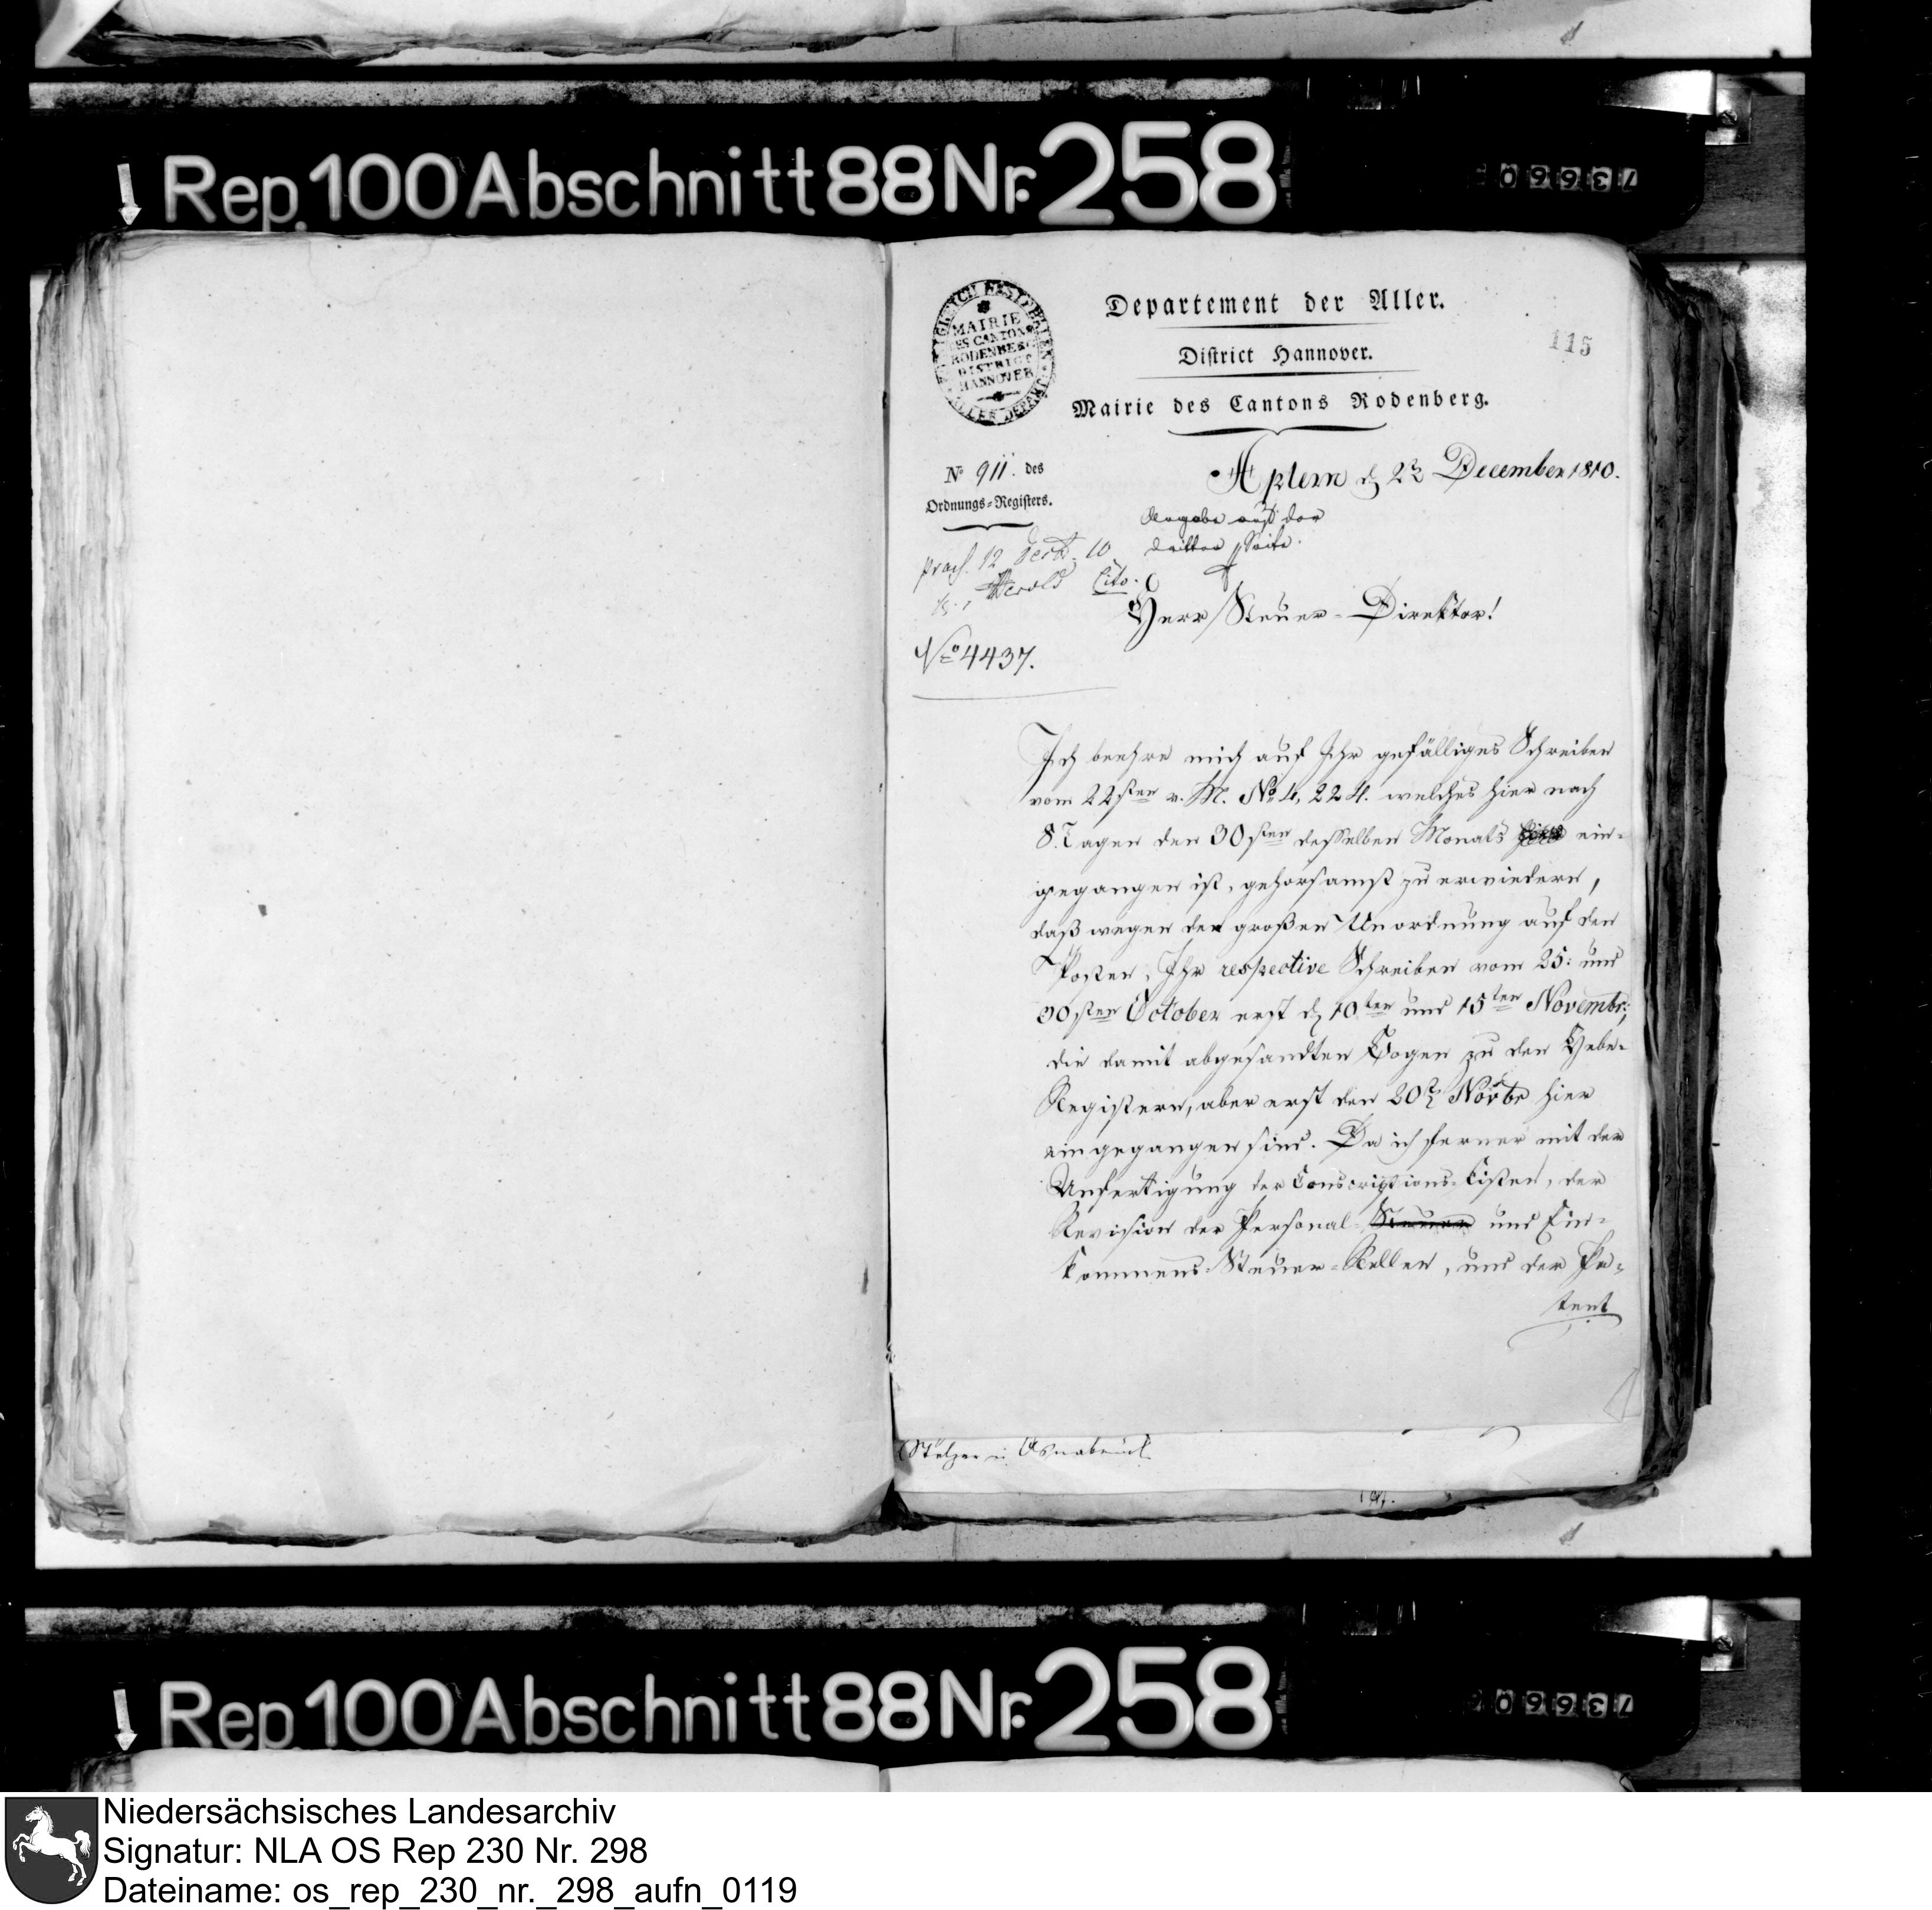 Rep. 100 Abschnitt 88 Nr. 258
73660
KÖNIGREICH WESTPHALEN
MAIRIE
DES CANTONS
RODENBERG
DISTRICT
HANNOVER
ALLER DEPART.
Departement der Aller.
115
District Hannover.
Mairie des Cantons Rodenberg.
No 911. des
Ordnungs-Registers.
Aplern d 23 December 1810.
auf der
dritten Seite.
praes. 12 10
Cito.
Herr Steuer-Direktor!
No 4437.
Ich beehre mich auf Ihr gefälliges Schreiben
vom 22sten v. M. No 4,224. welches hier nach
8. Tagen den 30sten desselben Monats ein-
gegangen ist, gehorsamst zu erwiedern,
daß wegen der großen Unordnung auf den
Posten, Ihr respective Schreiben vom 25: und
30sten October erst d 10ten und 15ten Novembr:,
die damit abgesandten Bogen zu den Hebe-
Registern, aber erst den 20t Novbr hier
eingegangen sind. Da ich ferner mit der
Anfertigung der Conscriptions-Listen, der
Revision der Personal-Steuer und Ein-
kommens-Steuer-Rollen, und der Pa-
tent
Stelzer in Osnabrück
Rep. 100 Abschnitt 88 Nr. 258
73660
Niedersächsisches Landesarchiv
Signatur: NLA OS Rep 230 Nr. 298
Dateiname: os_rep_230_nr._298_aufn_0119